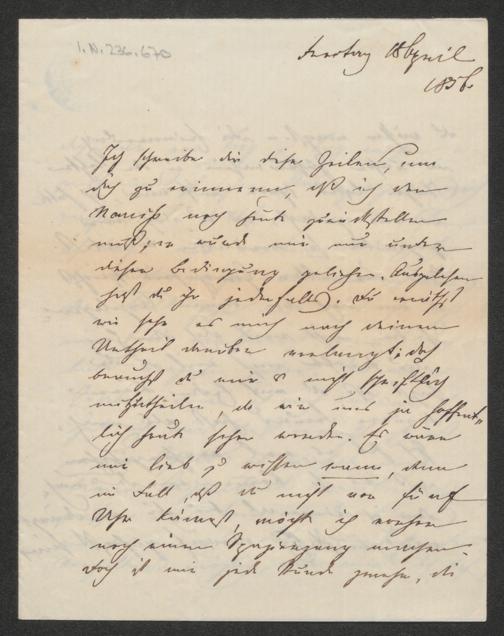 I.N. 236.670
Freitag 18 April
1856
Ich schreibe dir diese Zeilen, um
dich zu erinnern, daß ich den
Narciß noch heute zurückstellen
muß, er wurde mir nur unter
dieser Bedingung geliehen. Ausgelesen
hast du ihn jedenfalls. Du
wie sehr es mich nach deinem
Urtheil darüber verlangt; doch
brauchst du mir es nicht schriftlich
mitzutheilen, da wir uns ja hoffent-
lich heute sehen werden. Es wäre
mir lieb zu wissen wann, denn
im Fall, daß du nicht vor fünf
Uhr kommst, möcht ich vorher
noch einen Spaziergang machen.
Doch ist mir jede Stunde genehm, die